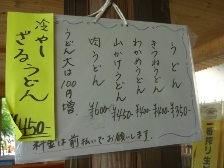 うどん ¥350
きつねうどん ¥450
わかめうどん ¥450
山かけうどん ¥450
肉うどん ¥600
うどん大は100円増
料金は前払いでお願いします。
冷やし
ざるうどん
¥450